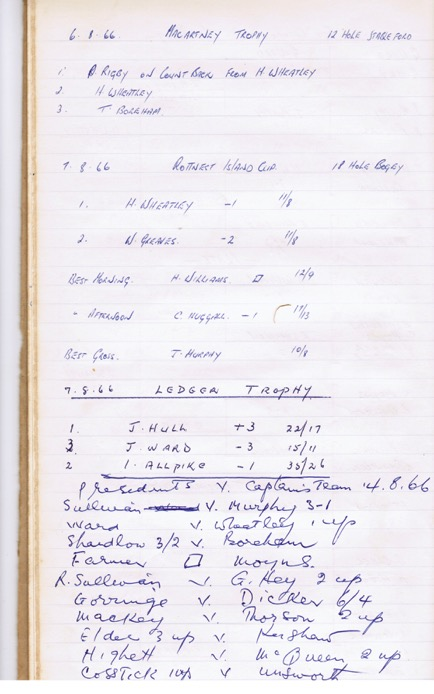 6.8.66 MACARTNEY TROPHY 12 HOLE STABLEFORD
1. D RIGBY ON COUNT BACK FROM H WHEATLEY
2 H WHEATLEY
3. T BOREHAM
7.8.66 ROTTNEST ISLAND CUP 18 HOLE BOGEY
1. H. WHEATLEY -1 11/8
2. W. GREAVES. -2 11/8
BEST MORNING. H. WILLIAMS □ 12/9
" AFTERNOON C. HUGGALL -1 17/13
BEST GROSS. T. MURPHY 10/8
7.8.66 LEDGER TROPHY
1. J. HULL +3 22/17
3 J. WARD -3 15/11
2 I. ALLPIKE -1 35/26
Presidents V. Captains Team 14.8.66
Sullivan V. Murphy 3-1
Ward V. Wheatley 1 up
Shardlow 3/2 V. Boreham
Farmer □ Moyns.
R. Sullivan V. G. Hey 2 up
Gorringe V. Dicker 6/4
Mackay V. Thorson 2 up
Elder 3 up V. Kershaw
Highett V. McQueen 2 up
Cosstick 1 up V Unsworth